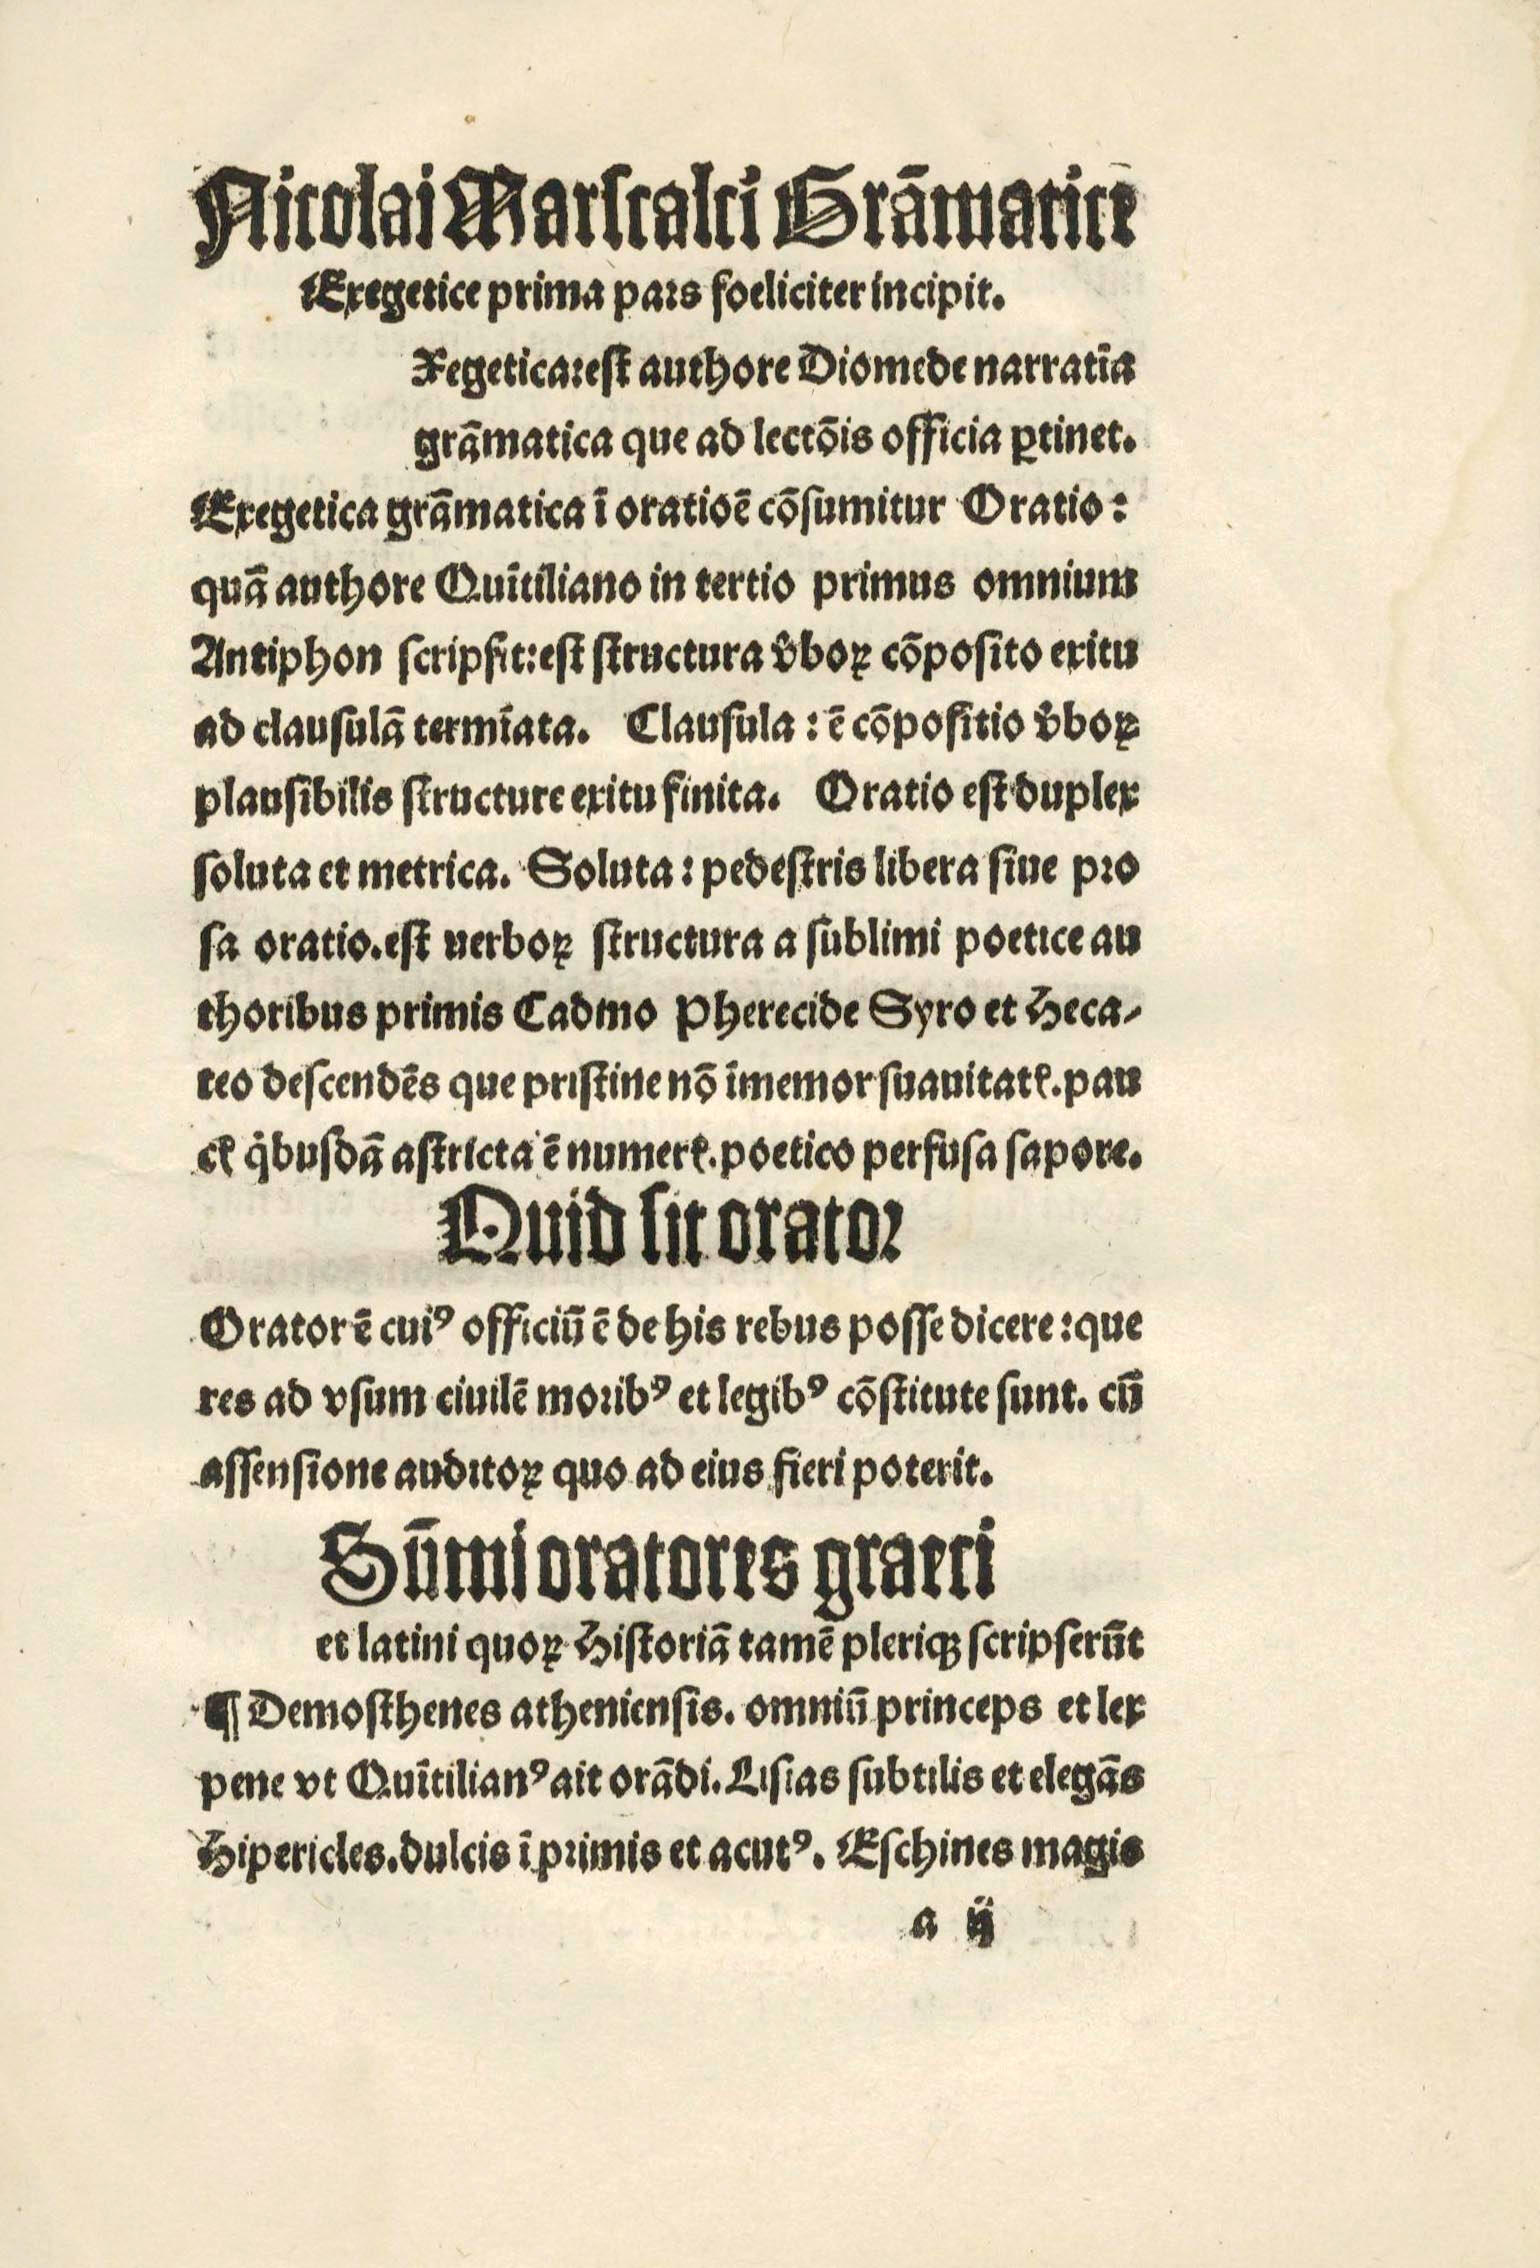 Nicolai Marscalci Grāmatice
Exegetice prima pars foeliciter incipit.
Xegetica:est authore Diomede narratīa
grāmatica que ad lectōis officia ꝑtinet.
Exegetica grāmatica ī oratioē cōsumitur Oratio:
quā authore Quītiliano in tertio primus omnium
Antiphon scripsit:est structura v̄boꝝ cōposito exitu
ad clausulā termīata. Clausula : ē cōpositio v̄boꝝ
plausibilis structure exitu finita. Oratio est duplex
soluta et metrica. Soluta : pedestris libera siue pro
sa oratio.est uerboꝝ structura a sublimi poetice au
thoribus primis Cadmo Pherecide Syro et Heca-
teo descendēs que pristine nō īmemor suauitatꝭ.pau
cꝭ qͥbusdā astricta ē numerꝭ.poetico perfusa sapore.
Quid sit orator
Orator ē cuiꝰ officiū ē de his rebus posse dicere :que
res ad vsum ciuilē moribꝰ et legibꝰ cōstitute sunt. cū
assensione auditoꝝ quo ad eius fieri poterit.
Sūmi oratores graeci
et latini quoꝝ Historiā tamē pleriqꝫ scripserūt
¶ Demosthenes atheniensis. omniū princeps et lex
pene vt Quītilianꝰ ait orādi. Lisias subtilis et elegās
Hipericles.dulcis ī primis et acutꝰ. Eschines magis
a ij